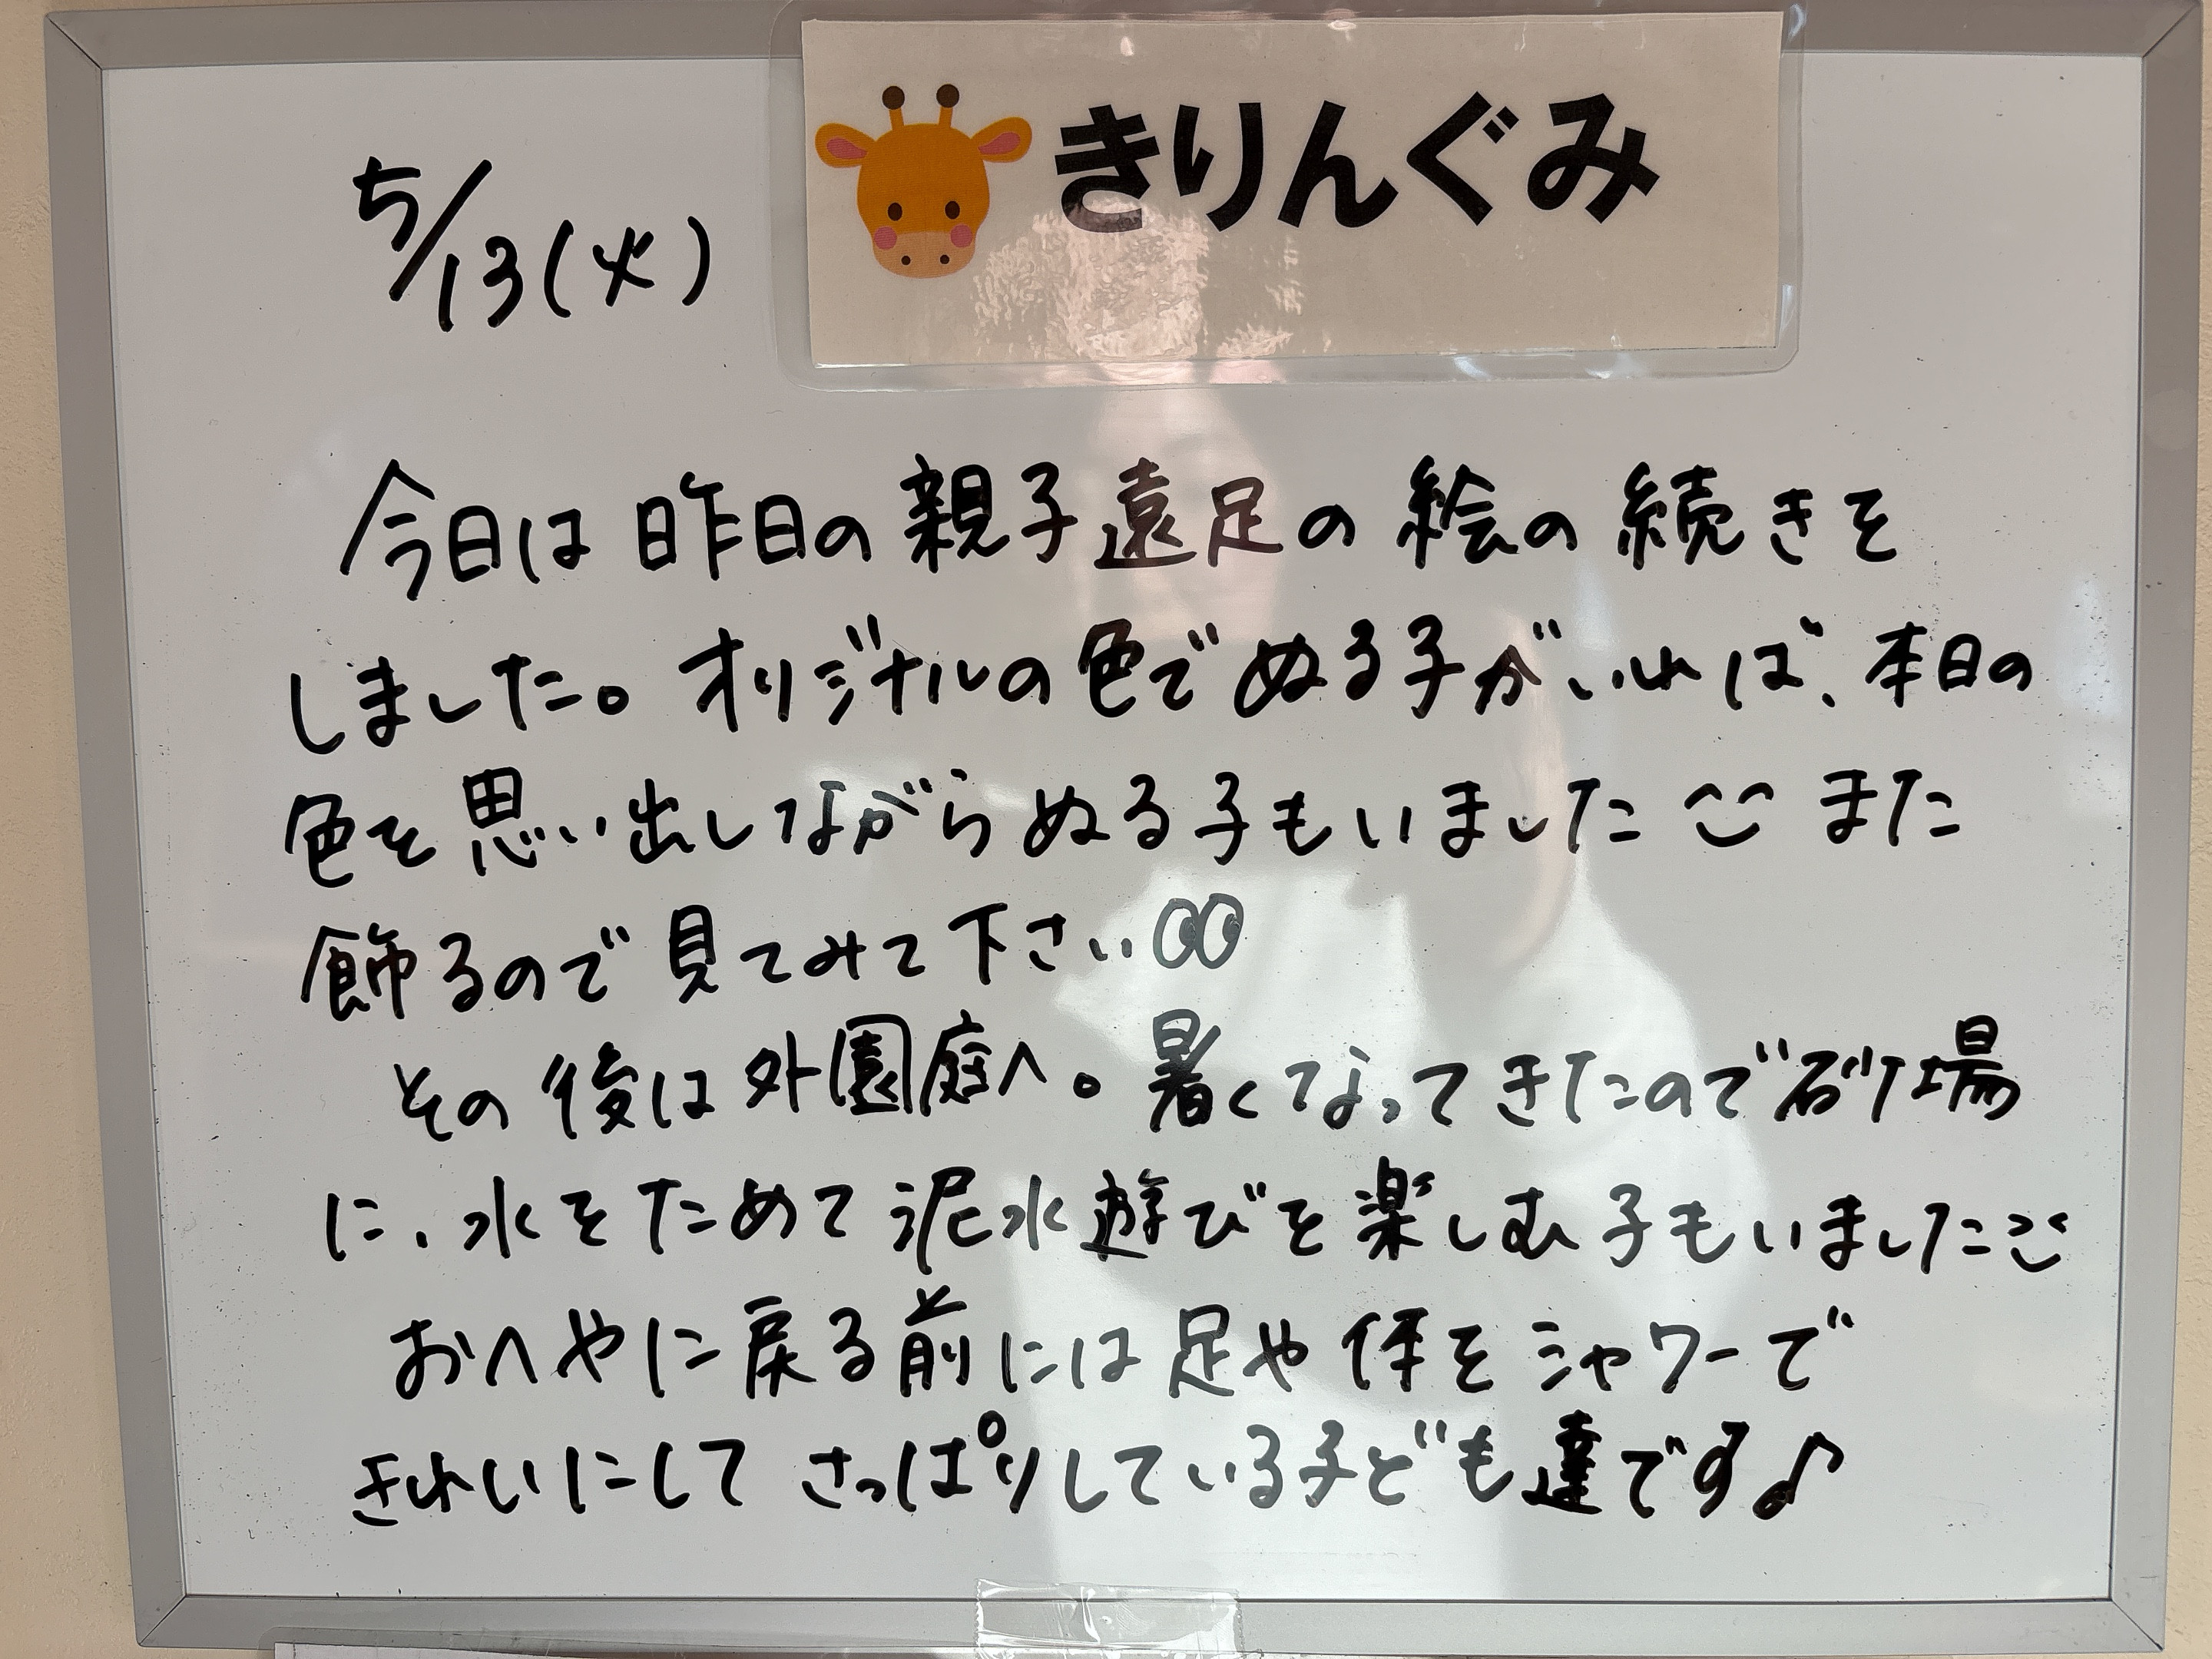 きりんぐみ
5/13(火)
今日は昨日の親子遠足の絵の続きを
しました。オリジナルの色でぬる子がいれば、本日の
色を思い出しながらぬる子もいました また
飾るので見てみて下さい
その後は外園庭へ。暑くなってきたので砂場
に、水をためて泥水遊びを楽しむ子もいました
おへやに戻る前には足や体をシャワーで
きれいにして さっぱりしている子ども達です♪